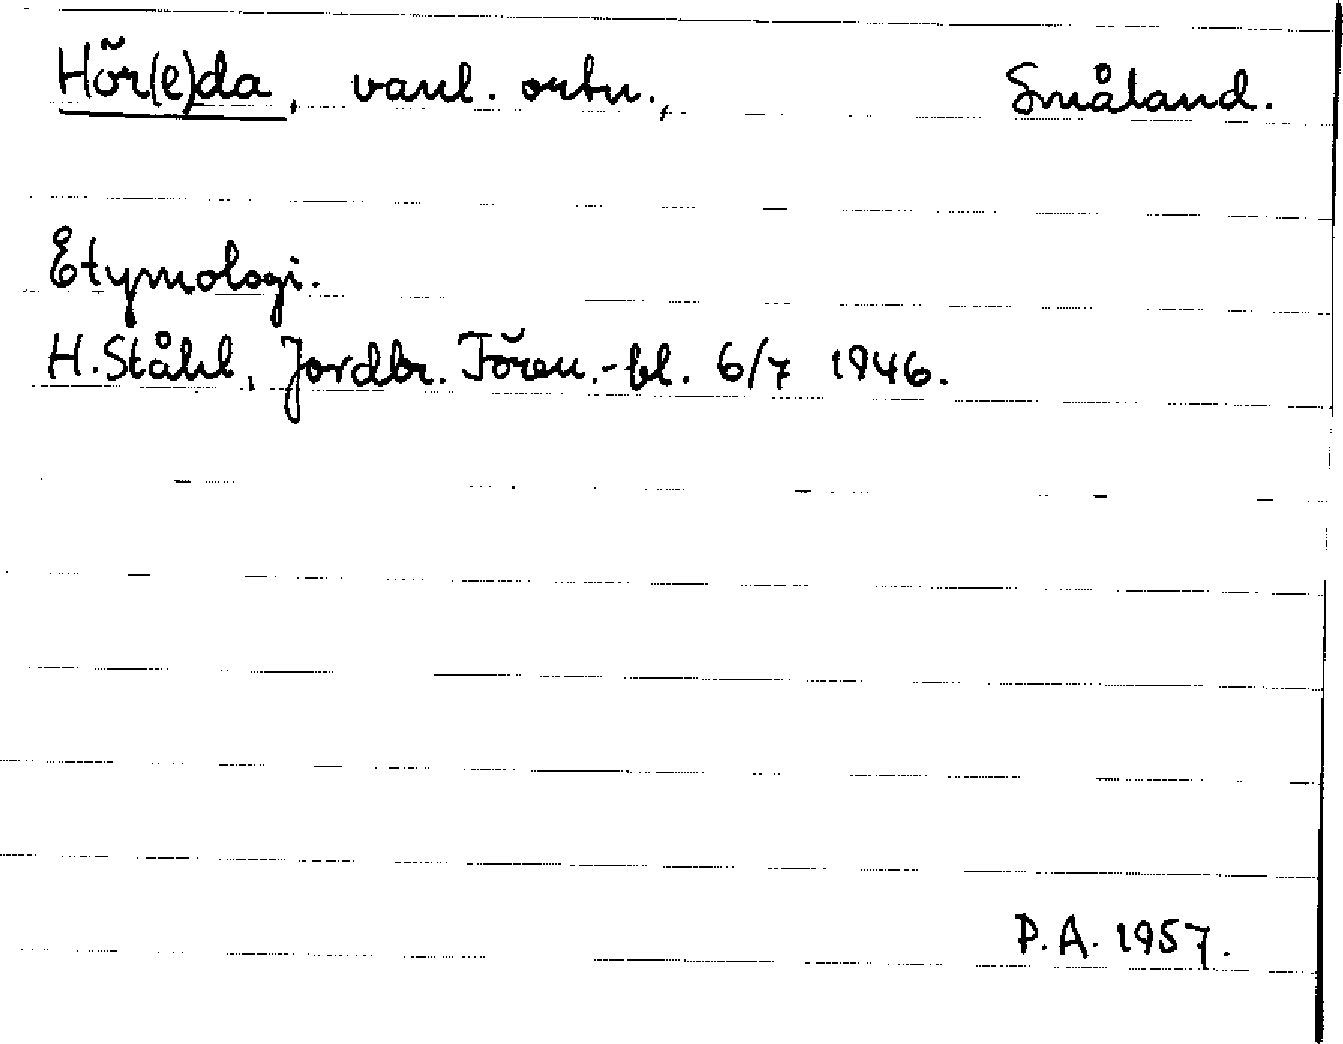 Hör(e)da, vanl. ortn., Småland.
Etymologi.
H. Ståhl, Jordbr. Fören.-bl. 6/7 1946.
P. A. 1957.